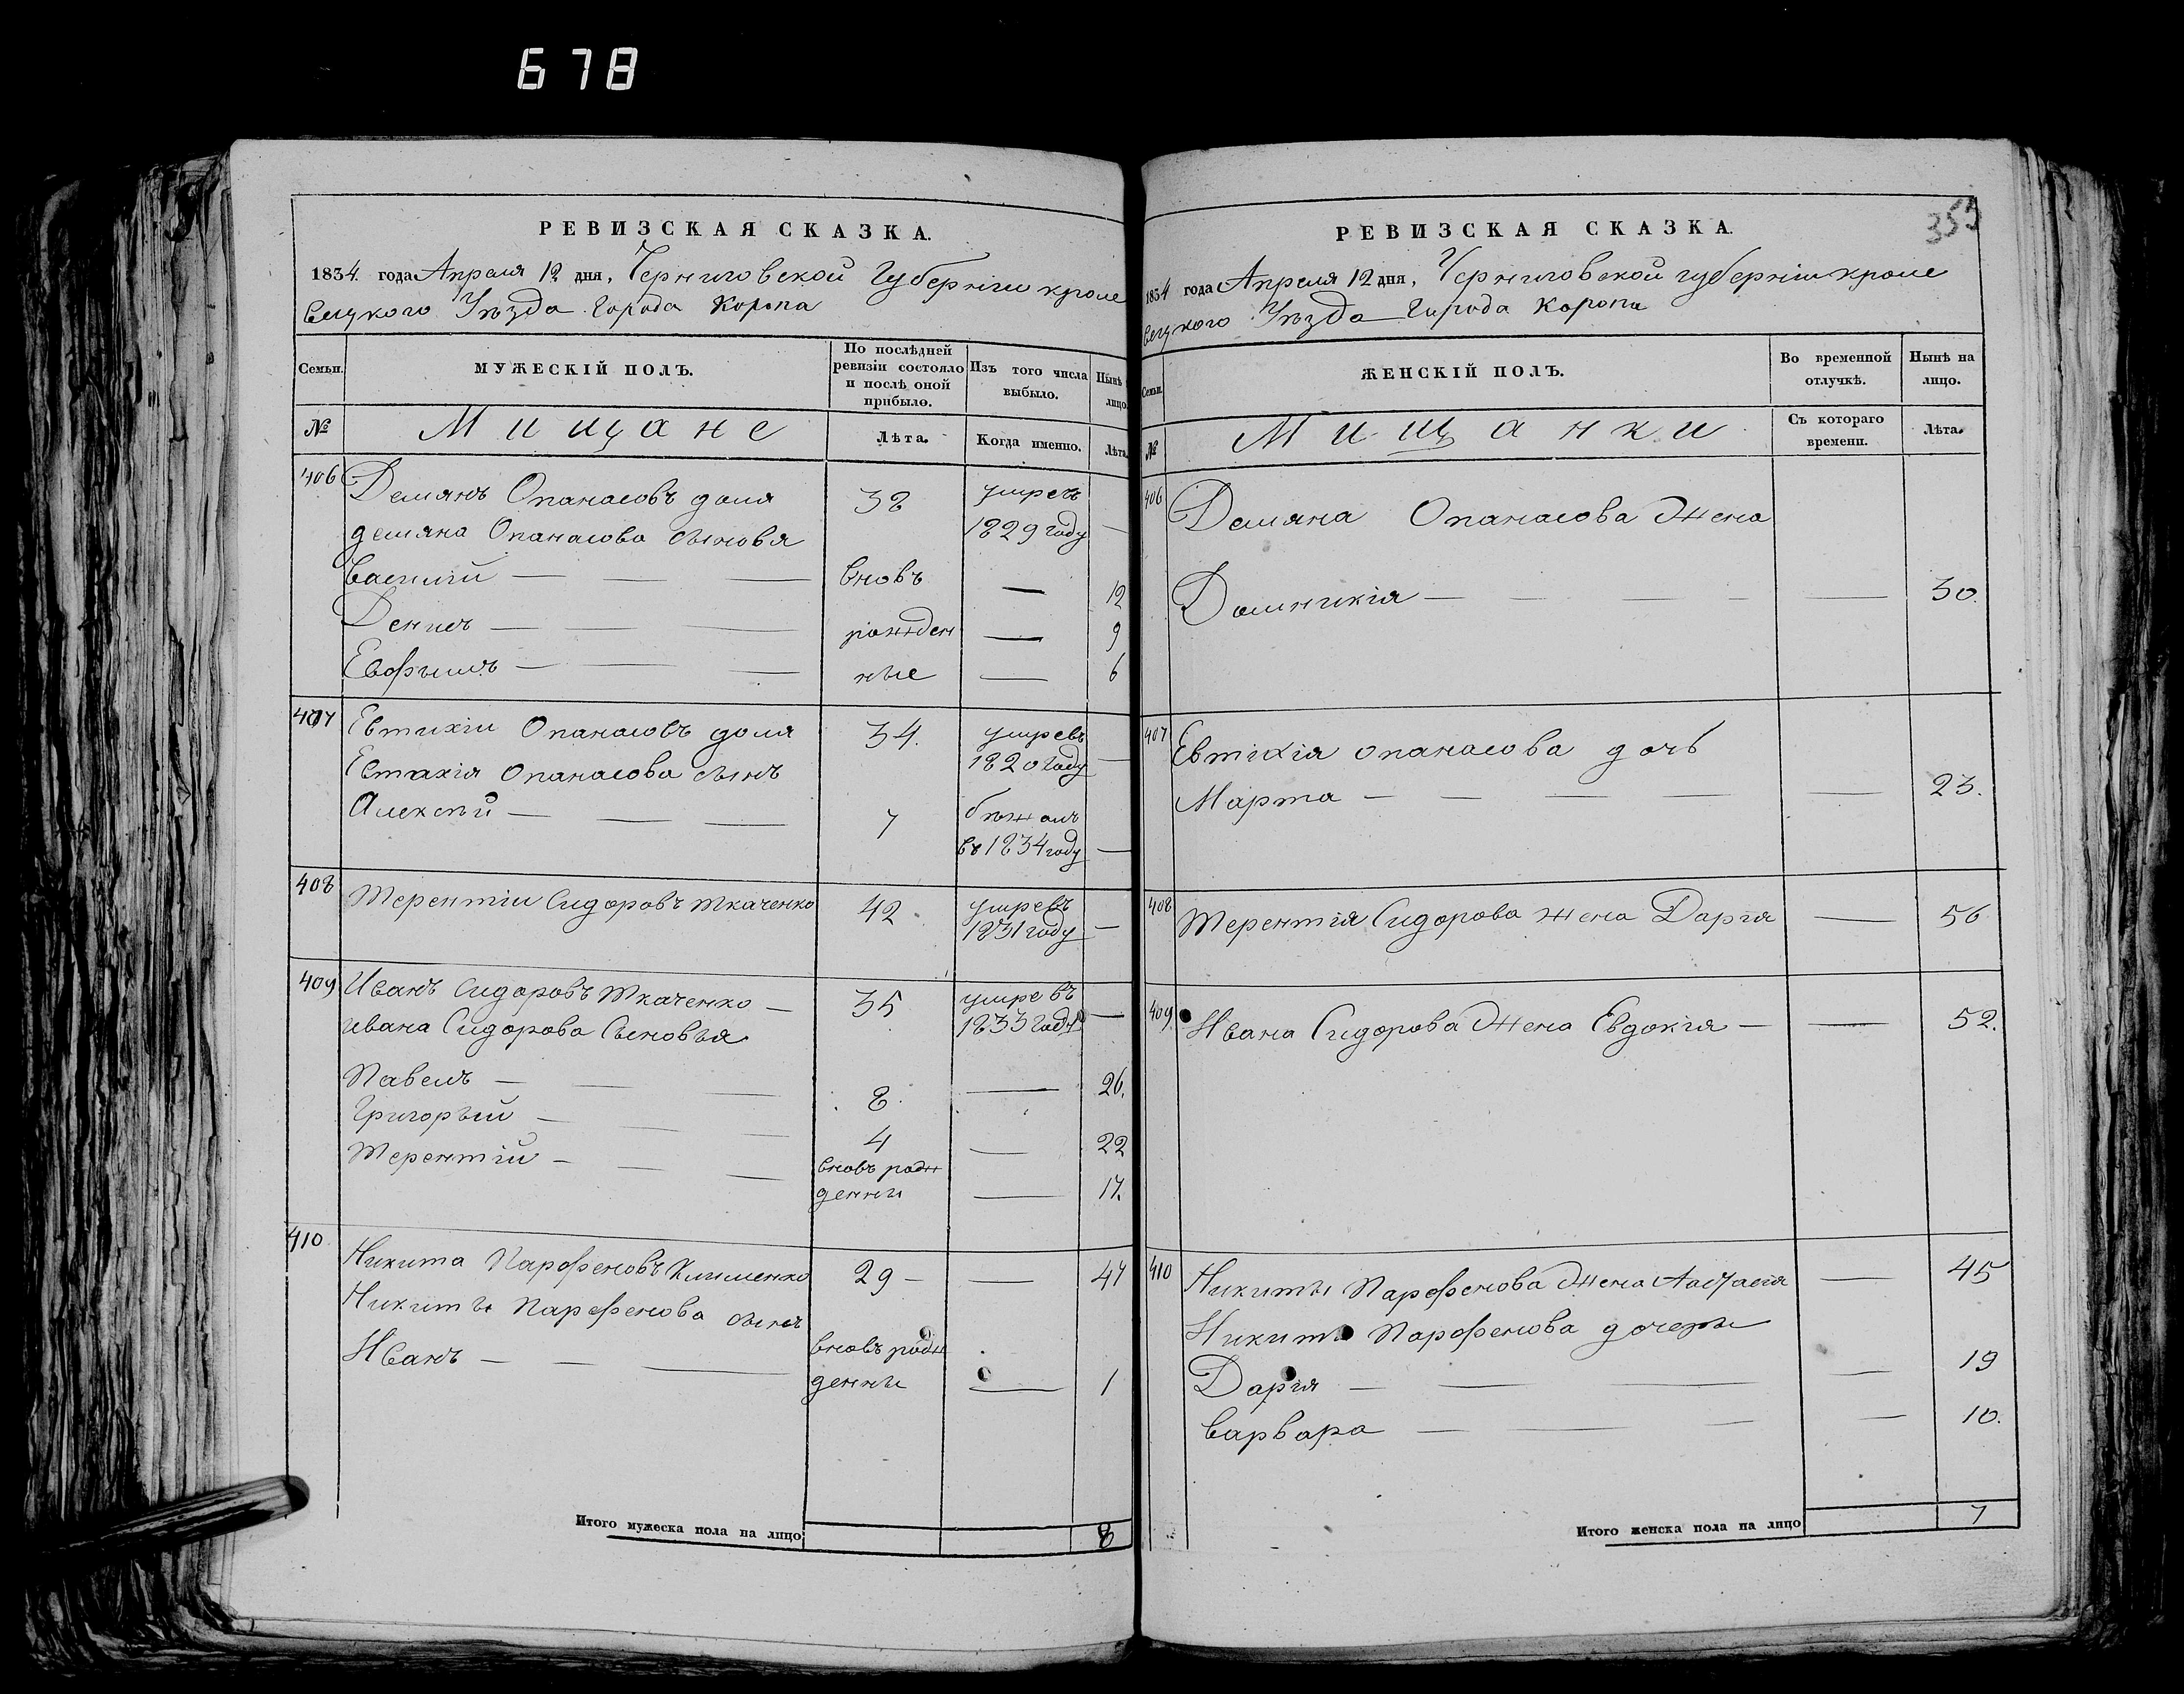 678
РЕВИЗСКАЯ СКАЗКА.
1834 года Апреля 12 дня, Черниговской Губернии кроле
вецкого Уъзда города Коропа
Семьи.
МУЖЕСКІЙ ПОЛЪ.
По послѣдней ревизіи состояло и послѣ оной прибыло.
Изъ того числа выбыло.
Нынѣ лицо.
№
Мищане
Лѣта.
Когда именно.
Лѣта.
406
Демянъ Опанасовъ доля
38
умре въ
1829 году
—
демяна Опанасова сыновя
Василий —
вновь
—
12
Денисъ —
рожден
—
9
Евфимъ —
ные
—
6
407
Евтихіи Опанасовъ доля
34.
умре въ
1820 году
—
Евтахія Опанасова сынъ
Алексѣй —
7
бѣжалъ
въ 1834 году
—
408
Терентіи Сидоровъ ткаченко
42
умре въ
1831 году
—
409
Иванъ Сидоровъ Ткаченко —
35
умре въ
1833 году
—
ивана Сидорова Сыновъя
Павелъ —
8.
—
26.
Григорый —
4
—
22
Терентій —
вновь рож
денны
—
17.
410
Никита Парфеновъ Клименко
29 —
—
47
Никиты Парфенова сынъ
Иванъ —
вновь рож
денны
—
1
Итого мужеска пола на лицо
8
355
РЕВИЗСКАЯ СКАЗКА.
1834 года Апреля 12 дня, Черниговской губерніи кроле
вецкого Уъзда города Коропа
Семьи.
ЖЕНСКІЙ ПОЛЪ.
Во временной отлучкѣ.
Нынѣ на лицо.
№
Мищанки
Съ котораго времени.
Лѣта.
406
Демяна Опанасова жена
Домникія —
—
30.
407
Евтіхія опанасова дочь
Марта —
—
23.
408
Терентія Сидорова жена Дарія
—
56
409
Ивана Сидорова жена Евдокія —
—
52.
410
Никиты Парфенова жена
—
45
Никиты Парфенова дочери
Дарія —
—
19
варвара —
—
10.
Итого женска пола на лицо
7